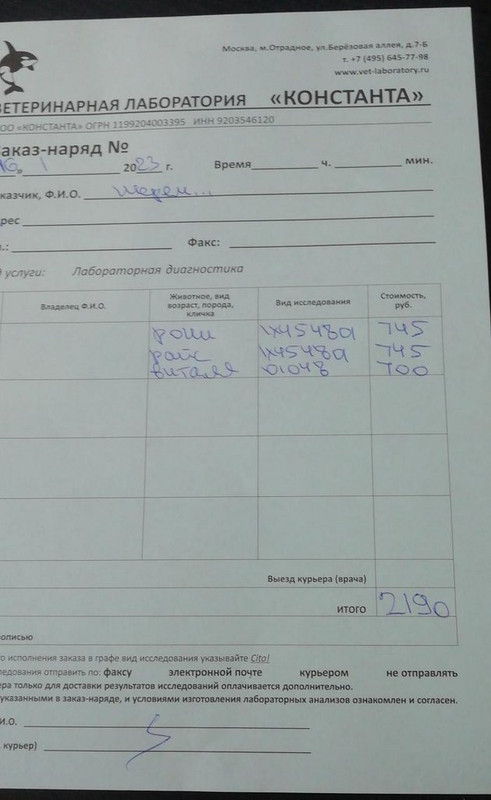 Москва, м.Отрадное, ул.Берёзовая аллея, д.7-Б
т. +7 (495) 645-77-98
www.vet-laboratory.ru
ВЕТЕРИНАРНАЯ ЛАБОРАТОРИЯ «КОНСТАНТА»
ООО «КОНСТАНТА» ОГРН 1199204003395 ИНН 9203546120
аказ-наряд №
16» 1 2023 г. Время ч. мин.
казчик, Ф.И.О.
рес
.: Факс:
услуги: Лабораторная диагностика
Владелец Ф.И.О. Животное, вид возраст, порода, кличка Вид исследования Стоимость, руб.
рони 1х45489 745
райс 1х45489 745
виталя 01048 700
Выезд курьера (врача)
ИТОГО 2190
описью
о исполнения заказа в графе вид исследования указывайте Cito!
ледования отправить по: факсу электронной почте курьером не отправлять
ера только для доставки результатов исследований оплачивается дополнительно.
указанными в заказ-наряде, и условиями изготовления лабораторных анализов ознакомлен и согласен.
И.О.
курьер)